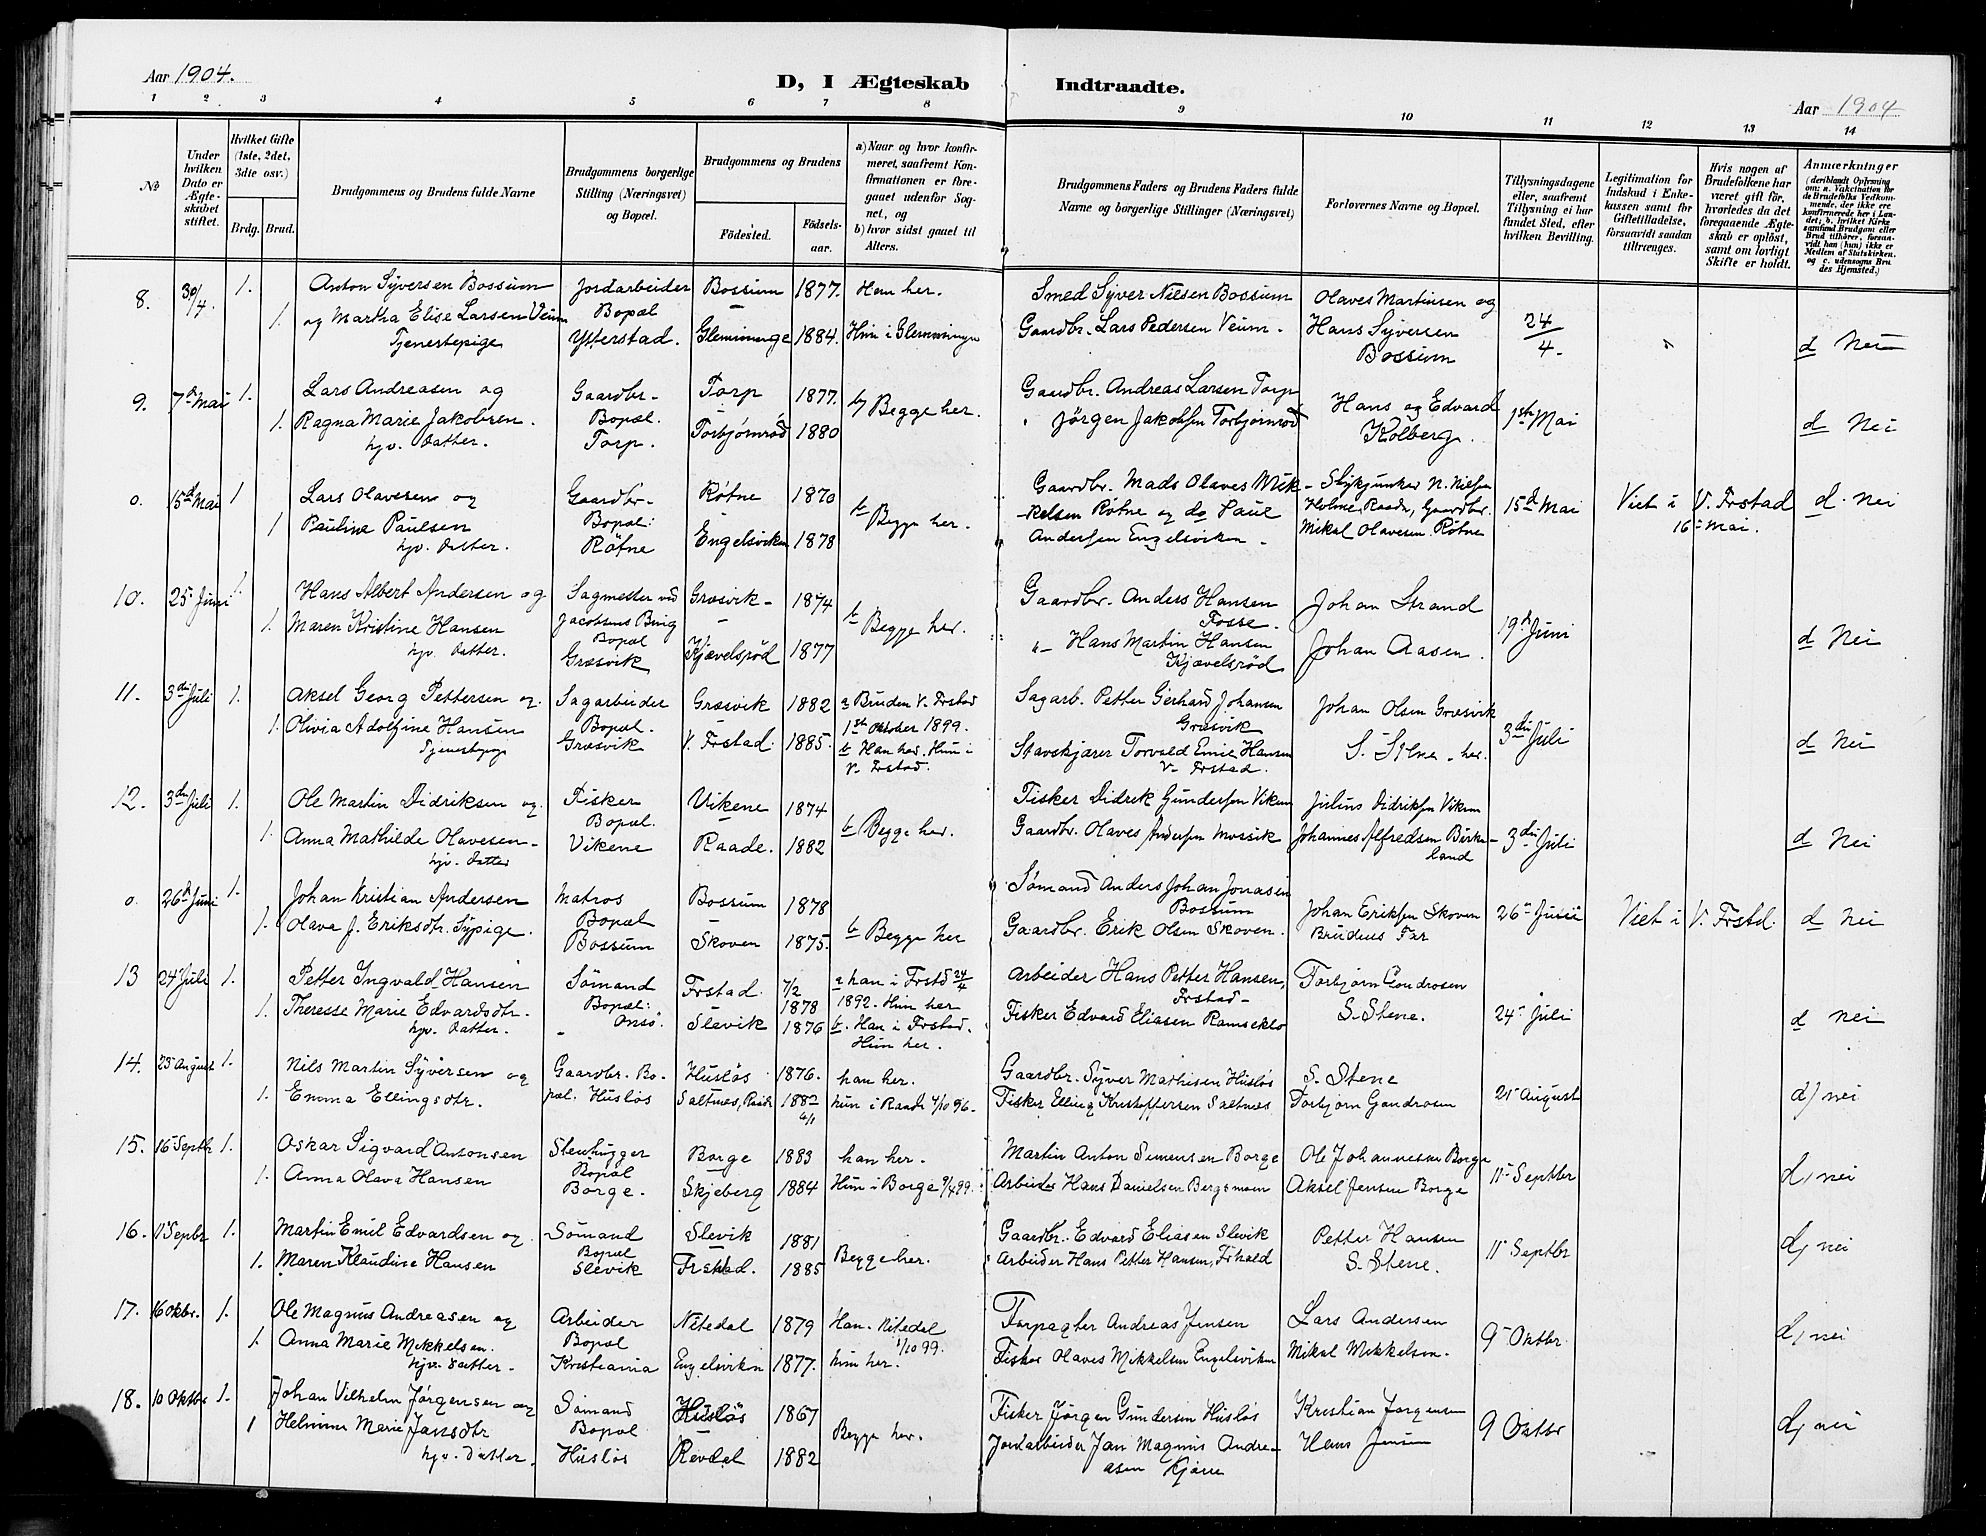 Aar 1904.
D, I Ægteskab Indtraadte.
Aar 1904
1 2 3 4 5 6 7 8 9 10 11 12 13 14
No
Under hvilken Dato er Ægteskabet stiftet.
Hvilket Gifte (1ste, 2det, 3die osv.)
Brdg. Brud.
Brudgommens og Brudens fulde Navne
Brudgommens borgerlige Stilling (Næringsvei) og Bopæl.
Brudgommens og Brudens
Fødested.
Fødselsaar.
a) Naar og hvor konfirmeret, saafremt Konfirmationen er foregaaet udenfor Sognet, og
b) hvor sidst gaaet til Alters.
Brudgommens Faders og Brudens Faders fulde Navne og borgerlige Stillinger (Næringsvei)
Forlovernes Navne og Bopæl.
Tillysningsdagene eller, saafremt Tillysning ei har fundet Sted, efter hvilken Bevilling.
Legitimation for Indskud i Enkekassen samt for Giftetilladelse, forsaavidt saadan tiltrænges.
Hvis nogen af Brudefolkene har været gift før, hvorledes da det foregaaende Ægteskab er opløst, samt om lovligt Skifte er holdt.
Anmærkninger
(deriblandt Oplysning om: a. Vakcination for de Brudefolks Vedkommende, der ikke ere konfirmerede her i Landet; b. hvilket Kirkesamfund Brudgom eller Brud tilhører, forsaavidt han (hun) ikke er Medlem af Statskirken, og c. udensogns Brudes Hjemsted.)
8. 30/4. 1. Anton Syversen Bossum Jordarbeider Bossum 1877. Han her. Smed Syver Nilsen Bossum Olaves Martinsen og
1. og Martha Elise Larsen Veum Bopæl Glemminge 1884. Hun i Glemminge Gaardbr. Lars Pedersen Veum. Hans Syversen 24/4.
Tjenestepige Ytterstad. Bossum d Nei
9. 7de Mai 1. Lars Andreasen og Gaardbr. Torp 1877. b) Begge her. Gaardbr. Andreas Larsen Torp Hans og Edvard 1ste Mai
1. Ragna Marie Jakobsen. Bopæl. Torbjørnrød 1880 Jørgen Jakobsen Torbjørnrød Kolberg. d Nei
hjv. Datter. Torp.
0. 15d Mai 1 Lars Olavesen og Gaardbr. Røfne 1870 b Begge her. Gaardbr. Mads Olaves Mik- Stykjunker N. Nilsen 15d Mai Viet i V. Frstad d. nei
1 Pauline Paulsen Bopæl: Engelsviken 1878 -kelsen Røfne og do Paul Holme, Raade, Gaardbr. 16 Mai.
hjv. Datter. Røfne Andersen Engelsviken. Mikal Olavesen Røfne
10. 25 Juni 1. Hans Albert Andersen og Sagmester ved Græsvik 1874 b Begge her. Gaardbr. Anders Hansen Johan Strand 19d Juni
1. Maren Kristine Hansen Jacobsens Brug Fosse.
hjv. Datter. Bopæl Græsvik Kjævelsrød 1877 Hans Martin Hansen Kjævelsrød Johan Aasen. d Nei
11. 3die Juli 1. Aksel Georg Pettersen og Sagarbeider Græsvik 1882 a Bruden V. Frstad Sagarb. Petter Gerhard Johansen Johan Olsen Græsvik 3die Juli
1. Olivia Adolfine Hansen Bopæl. V. Frstad 1885. 1st Oktober 1899. Græsvik S. Stene. her.
Tjenestepige Græsvik b Han her. Hun i V. Frstad. Stavskjærer Torvald Emil Hansen V. Frstad. d Nei
12. 3die Juli 1. Ole Martin Didriksen og Fisker Vikene 1874 b Begge her. Fisker Didrik Gundersen Viken Julius Didriksen Viken
1. Anna Mathilde Olavesen Bopæl. Raade. 1882 Gaardbr. Olaves Andersen Mossik Johannes Alfredsen Birke- 3die Juli d Nei
hjv. Datter Vikene land
0. 26d Juni 1. Johan Kristian Andersen Matros Bossum 1878 b Begge her Sømand Anders Johan Jonasen Johan Eriksen Skoven 26 Juni Viet i V. Frstd. d nei
1. Olava J. Eriksdtr. Sypige. Bopæl Skoven 1875. Bossum Brudens Far
Bossum Gaardbr. Erik Olsen Skoven.
13 24 Juli 1. Petter Ingvald Hansen Sømand Frstad 7/2 1878 a han i Frstd 24/4 Arbeider Hans Petter Hansen, Torbjørn Gondrosen
1. Theresse Marie Edvardsdtr. Bopæl: Slevik 1876 1892. Hun her Frstad S. Stene. 24 Juli
hjv. Datter. Onsø. b. Han i Frstad. Hun her. Fisker Edvard Eliasen Ramseklo d nei
14. 25 August 1. Nils Martin Syversen og Gaardbr. Bo- Husløs 1876. han her. Gaardbr. Syver Mathisen Husløs S. Stene
1. Emma Ellingsdtr. pæl. Husløs Saltnes, Raade 1882 6/1 hun i Raade 4/10 96. Fisker Elling Kristoffersen Saltnes Torbjørn Gondrosen 21 August d) nei
15. 16 Septbr 1. Oskar Sigvard Antonsen Stenhugger Borge 1883 han her. Martin Anton Simensen Borge Ole Johannesen Borge 11 Septbr
1. Anna Olava Hansen Bopæl Borge. Skjeberg 1884 Hun i Borge 9/4 99. Arbeider Hans Danielsen Bergsmoen Aksel Jensen Borge d, nei
16. 11 Sepbr 1. Martin Emil Edvardsen og Sømand Slevik 1881 Begge her. Gaardbr. Edvard Eliasen Slevik Petter Hansen 11 Septbr d, nei
1. Maren Klaudine Hansen Bopæl Slevik Frstad. 1885 Arbeider Hans Petter Hansen, Frhald S. Stene.
17. 16 Oktbr. 1. Ole Magnus Andreasen og Arbeider Nitedal 1879 Han. Nitedal 1/10 99. Forpagter Andreas Jensen Lars Andersen 9 Oktbr d, nei
1. Anna Marie Mikkelsen. Bopæl Engelsviken 1877. hun her. Fisker Olaves Mikkelsen Engelsviken Mikal Mikkelsen.
hjv. Datter. Kristiania
18. 10 Oktbr 1. Johan Vilhelm Jørgensen og Sømand Husløs 1867 Begge her. Fisker Jørgen Gundersen Husløs Kristian Jørgensen 9 Oktbr d, nei
1 Helmine Marie Jansdtr Bopæl Revdal 1882 Jordarbeider Jan Magnus Andre- Hans Jensen
hjv. Datter. Husløs asen Kjøne